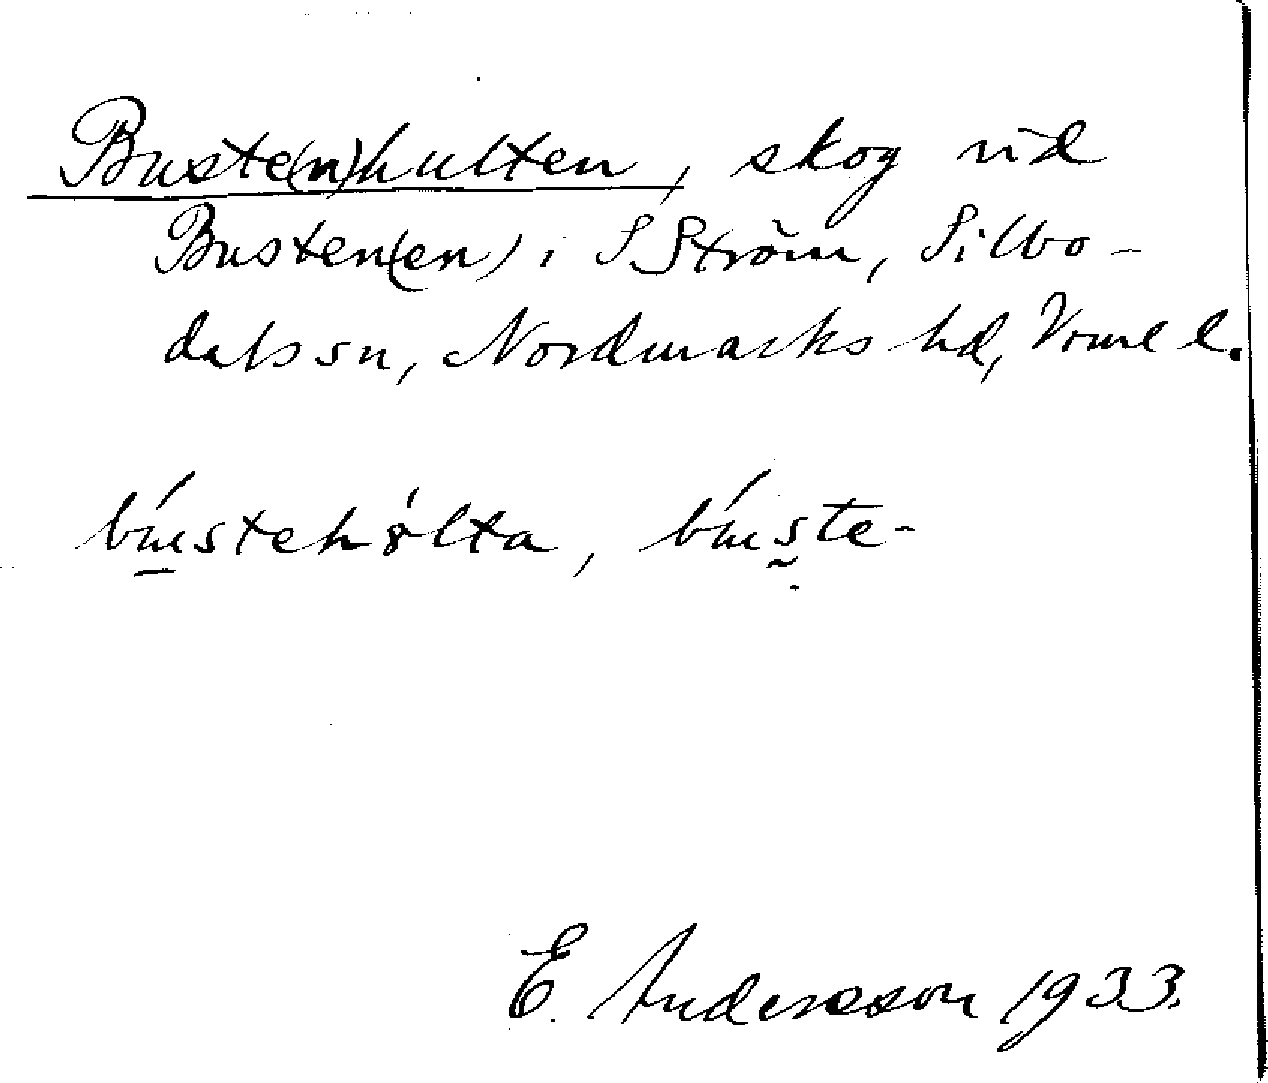 Buste(n)hulten, skog vid
Busten(en) i S Ström, Silbo-
dals sn, Nordmarks hd, Vrml l.
bústehòlta, búste-
E. Andersson 1933.